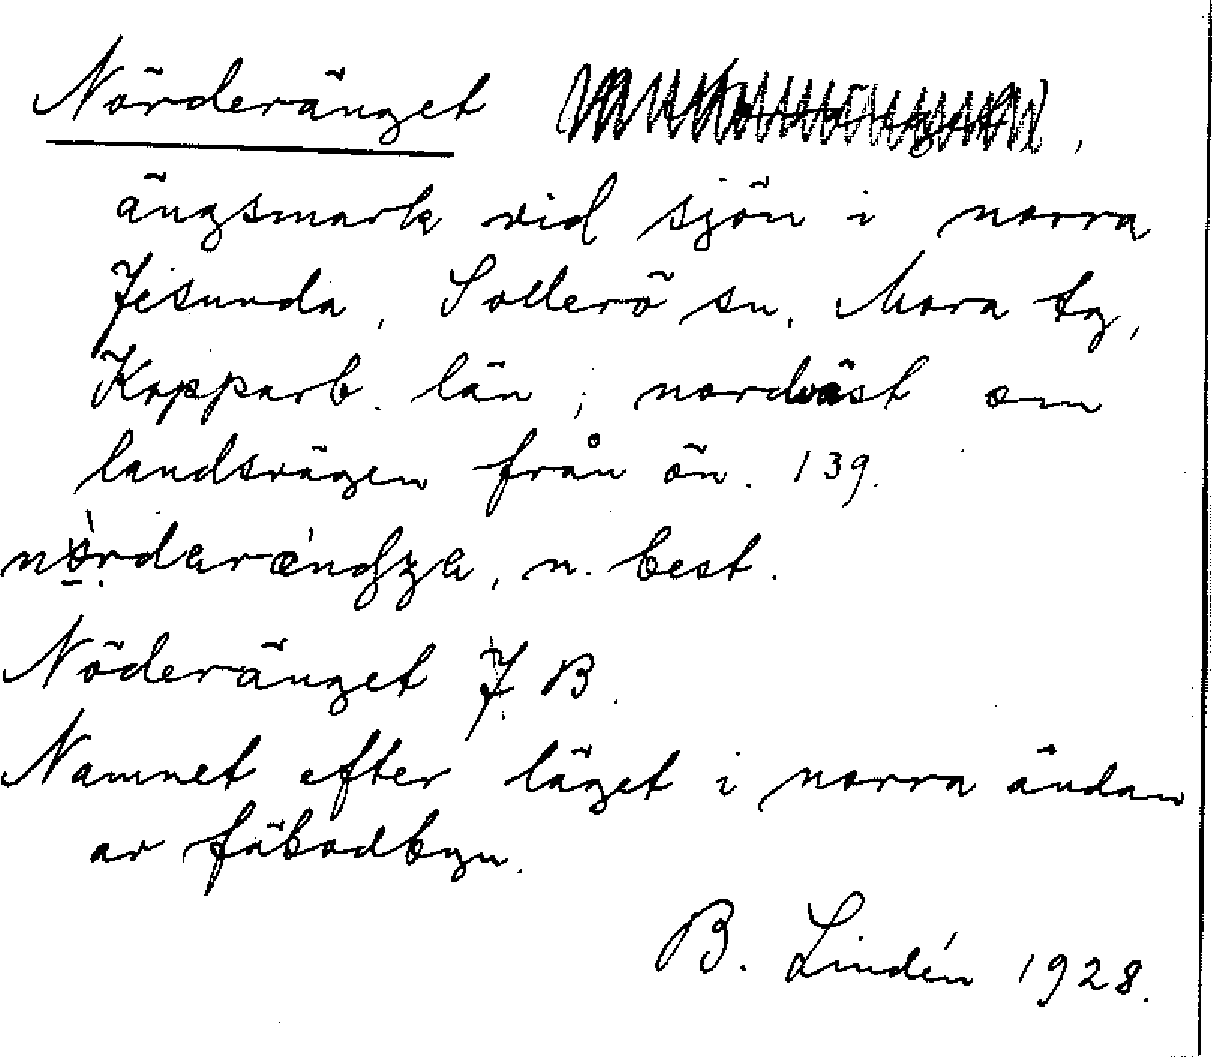 Nörderänget ,
ängsmark vid sjön i norra
Jisunda, Sollerö sn, Mora tg,
Kopparb. län, nordväst om
landsvägen från ön. 139.
n. best.
Nöderänget J. B.
Namnet efter läget i norra ändan
av fäbodbyn.
B. Lindén 1928.